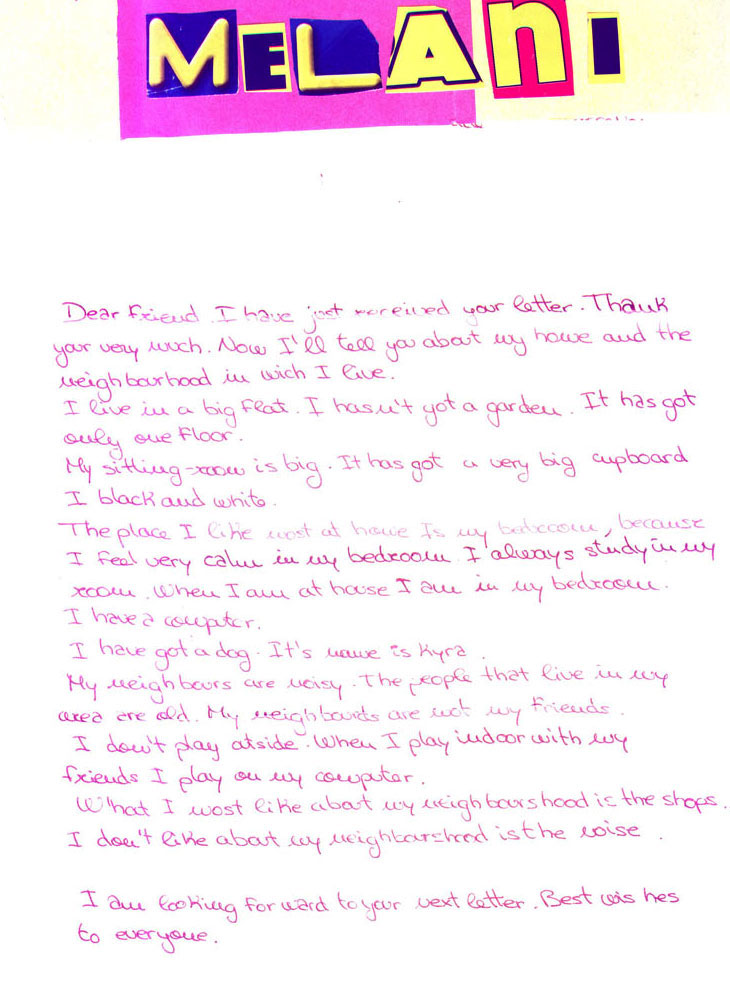 MELANi
Dear friend. I have just rereived your letter. Thank
your very much. Now I'll tell you about my home and the
neighbourhood in wich I live.
I live in a big flat. I hasn't got a garden. It has got
only one floor.
My sitting-room is big. It has got a very big cupboard
I black and white.
The place I like most at home Is my bedroom, because
I feel very calm in my bedroom. I always study in my
room. When I am at house I am in my bedroom.
I have a computer.
I have got a dog. It's name is Kyra.
My neighbours are noisy. The people that live in my
area are old. My neighbourds are not my friends.
I don't play atside. When I play indoor with my
friends I play on my computer.
What I most like about my neighbourshood is the shops.
I don't like about my neighbourshood is the noise.
I am looking forward to your next letter. Best wishes
to everyone.